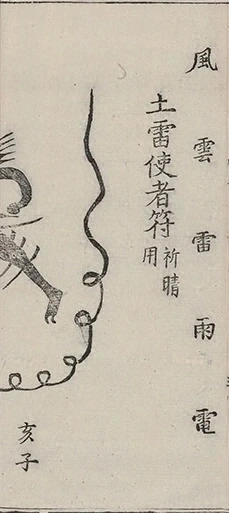 風雲雷雨電
土雷使者符祈晴用
亥子